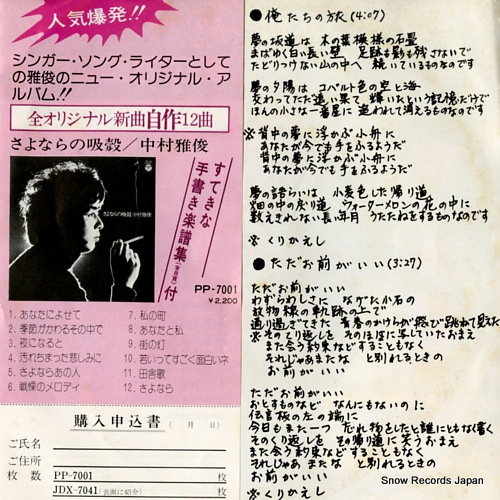 人気爆発!!
シンガー・ソング・ライターとして
の雅俊のニュー・オリジナル・ア
ルバム.!!
全オリジナル新曲自作12曲
さよならの吸殻／中村雅俊
すてきな
手書き楽譜集(全曲)付
さよならの吸殻 中村雅俊
PP-7001
¥2,200
1. あなたによせて
2. 季節がかわるその中で
3. 夜になると
4. 汚れちまった悲しみに
5. さよならあの人
6. 戦慄のメロディ
7. 私の町
8. あなたと私
9. 街の灯
10. 若いってすごく面白いネ
11. 田舎歌
12. さよなら
購入申込書 (　月　日)
ご氏名
ご住所
枚数 PP-7001 枚
JDX-7041(裏面に紹介) 枚
●俺たちの旅(4:07)
夢の坂道は 木の葉模様の石畳
まばゆく白い長い壁 足跡も影も残さないで
たどりつけない山の中へ 続いているものなのです
夢の夕陽は コバルト色の空と海
交わってただ遠い果て 輝いたという記憶だけで
ほんの小さな一番星に 追われて消えるものなのです
※背中の夢に浮かぶ小舟に
あなたが今でも手をふるようだ
背中の夢に浮かぶ小舟に
あなたが今でも手をふるようだ
夢の語らいは 小麦色した帰り道
畑の中の戻り道 ウォーターメロンの花の中に
数えきれない長い年月 うたたねをするものなのです
※くりかえし
●ただお前がいい(3:27)
ただお前がいい
わずらわしさに なげた小石の
放物線の軌跡の上で
通り過ぎてきた 青春のかけらが飛び跳ねて見えた
※そのくり返しを そのほほに写していたおまえ
また会う約束などすることもなく
それじゃあまたな と別れるときの
お前がいい
ただお前がいい
おとすものなど なんにもないのに
伝言板の左の端に
今日もまた一つ 忘れ物をしたと誰にともなく書く
そのくり返しを その帰り道に笑うおまえ
また会う約束などすることもなく
それじゃあまたな と別れるときの
お前がいい
※くりかえし
Snow Records Japan